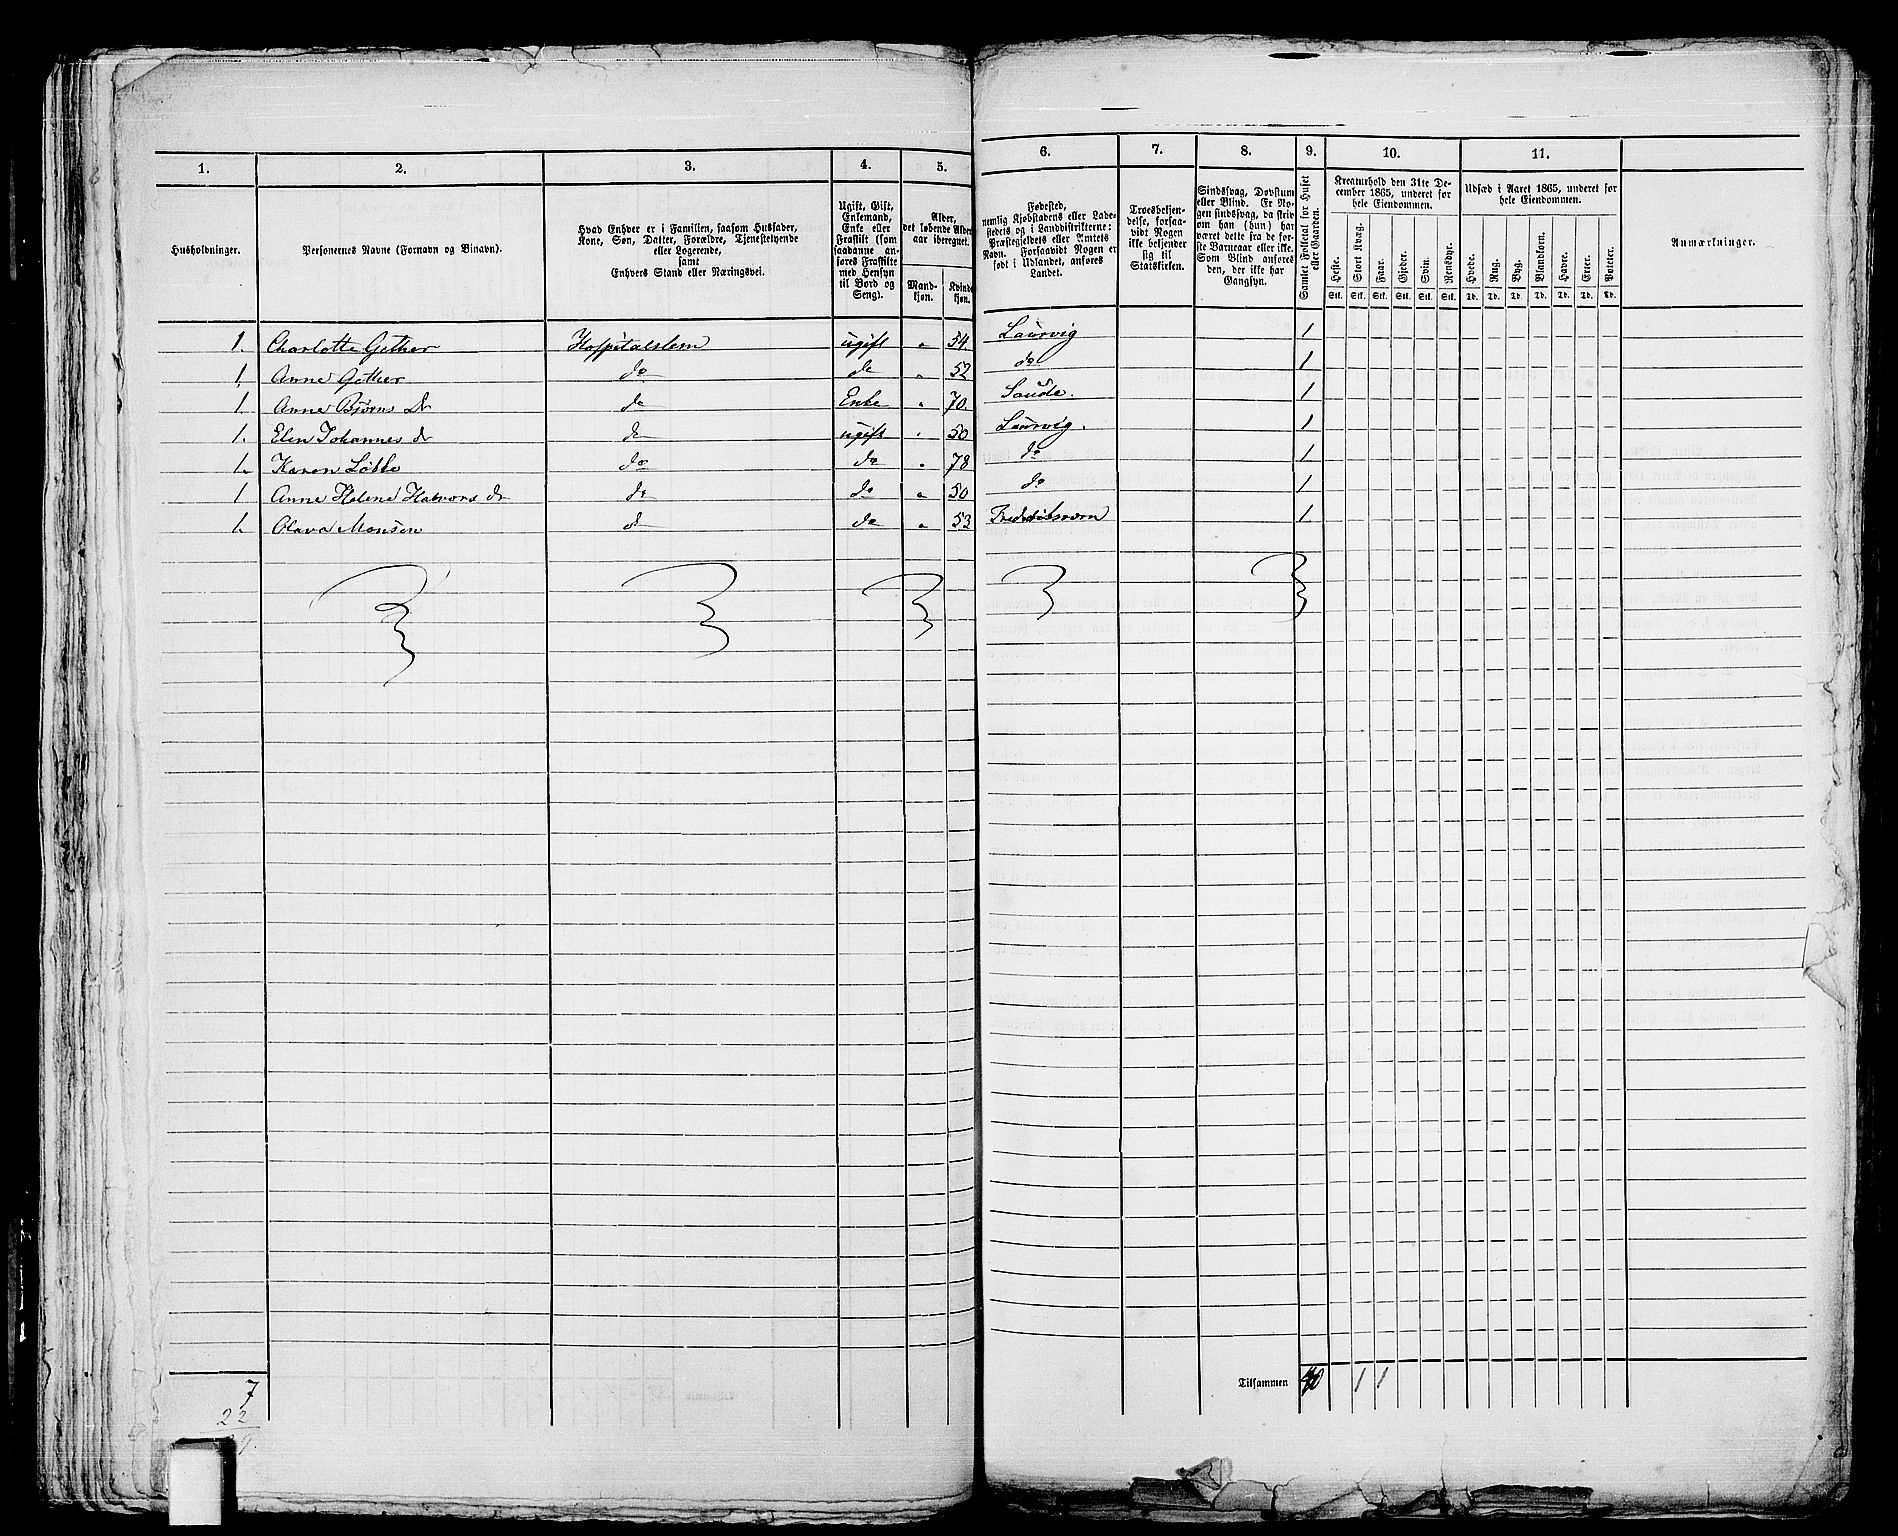 1. 2. 3. 4. 5. 6. 7. 8. 9. 10. 11.
Husholdninger.
Personernes Navne (Fornavn og Binavn).
Hvad Enhver er i Familien, saasom Husfader,
Kone, Søn, Datter, Forældre, Tjenestetyende
eller Logerende,
samt
Enhvers Stand eller Næringsvei.
Ugift, Gift,
Enkemand,
Enke eller
Fraskilt (som
saadanne an-
føres Fraskilte
med Hensyn
til Bord og
Seng).
Alder,
det løbende Alder
aar iberegnet.
Mand-
kjøn.
Kvinde
kjøn.
Fødested,
nemlig Kjøbstadens eller Lade-
stedets og i Landdistrikterne:
Præstegjeldets eller Amtets
Navn. Forsaavidt Nogen er
født i Udlandet, anføres
Landet.
Troesbekjen-
delse, forsaa-
vidt Nogen
ikke bekjender
sig til
Statskirken.
Sindssvag, Døvstum
eller Blind. Er No-
gen sindssvag, da skriv
om han (hun) har
været dette fra de før-
ste Barneaar eller ikke.
Som Blind anføres
den, der ikke har
Gangsyn.
Samlet Folketal for Huset
eller Gaarden.
Kreaturhold den 31te De-
cember 1865, underet for
hele Eiendommen.
Heste. Stort Kvæg. Faar. Gjeder. Svin. Rensdyr.
Stk. Stk. Stk. Stk. Stk. Stk.
Udsæd i Aaret 1865, underet for
hele Eiendommen.
Hvede. Rug. Byg. Blandkorn. Havre. Erter. Poteter.
Td. Td. Td. Td. Td. Td. Td.
Anmærkninger.
1. Charlotte Gether Hospitalslem ugift " 54. Laurvig 1
1. Anne Gether do do " 52 do 1
1 Anne Bjørns Dr do Enke " 70. Saude. 1
1. Elen Johannes dr do ugift " 50 Laurvig. 1
1. Karen Løkke do do " 78 do 1
1 Anne Helene Halvors dr do do " 50 do 1
1. Olava Monsen do do " 53 Frederiksværn 1
Tilsammen 1 1
7
22